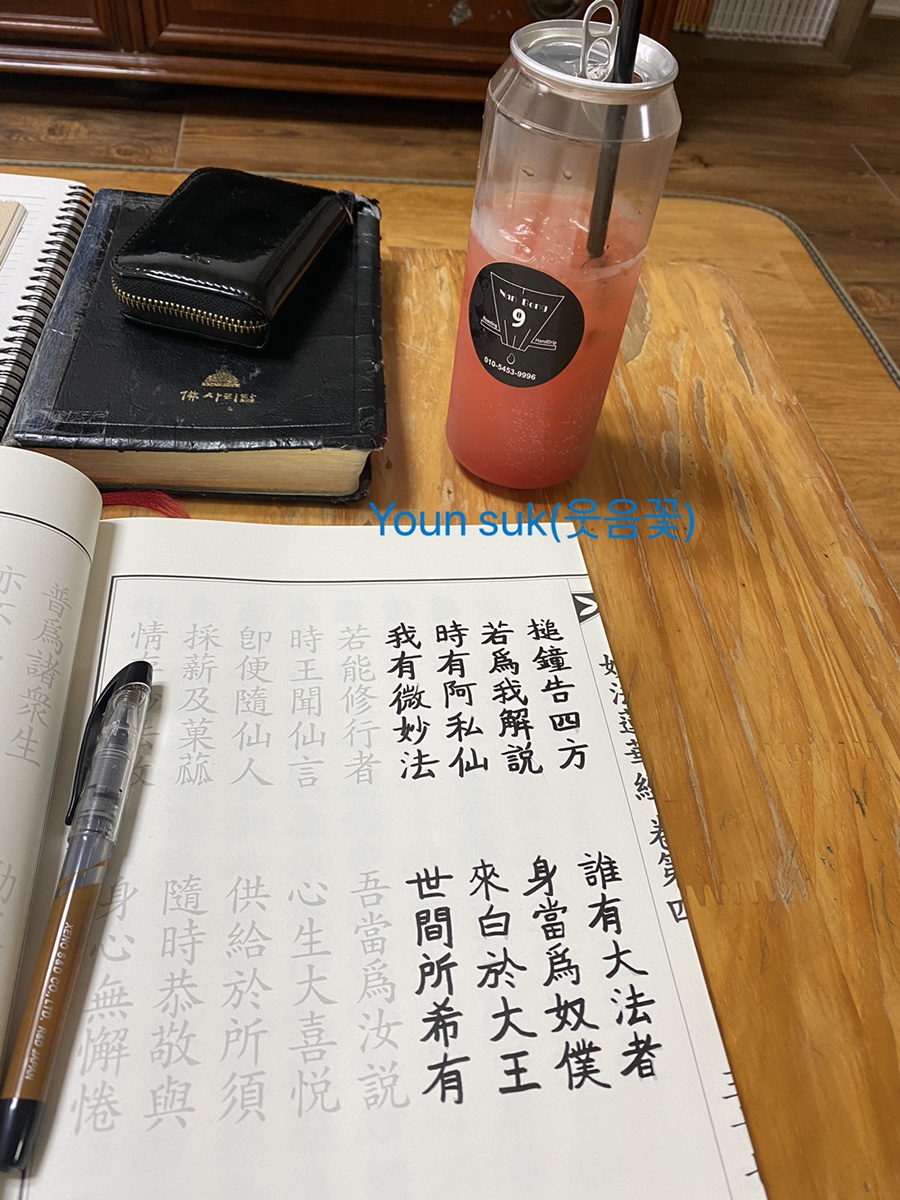 HandDrip
9
010-5453-9996
佛 사리탑
Youn suk(웃음꽃)
妙法蓮華經 卷第四
搥鐘告四方 誰有大法者
若爲我解說 身當爲奴僕
時有阿私仙 來白於大王
我有微妙法 世間所希有
若能修行者 吾當爲汝說
時王聞仙言 心生大喜悅
卽便隨仙人 供給於所須
採薪及菓蓏 隨時恭敬與
情存妙法故 身心無懈惓
普爲諸衆生
XENO S&D CO.,LTD R&D JAPAN